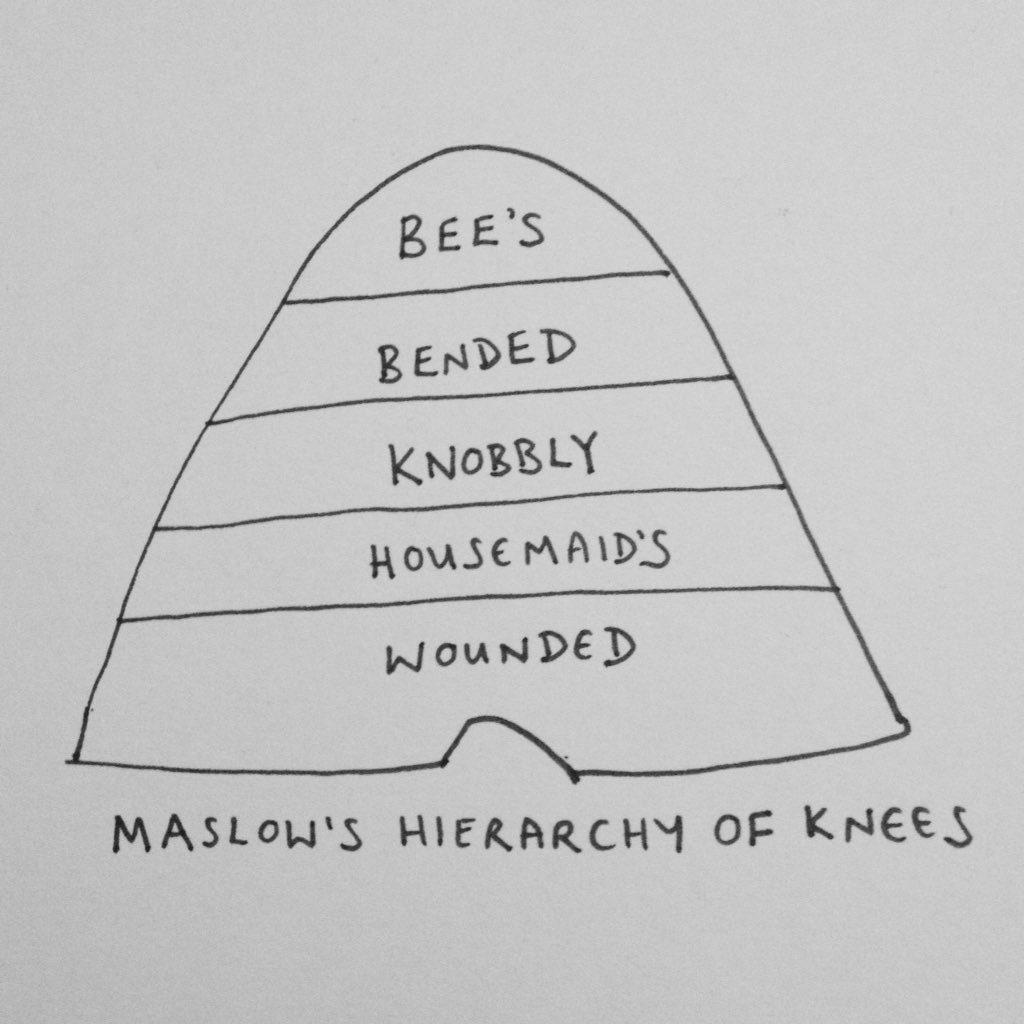 BEE'S
BENDED
KNOBBLY
HOUSEMAID'S
WOUNDED
MASLOW'S HIERARCHY OF KNEES